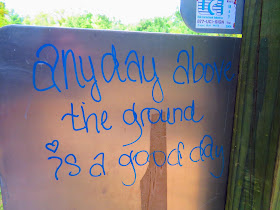 any day above
the ground
is a good day